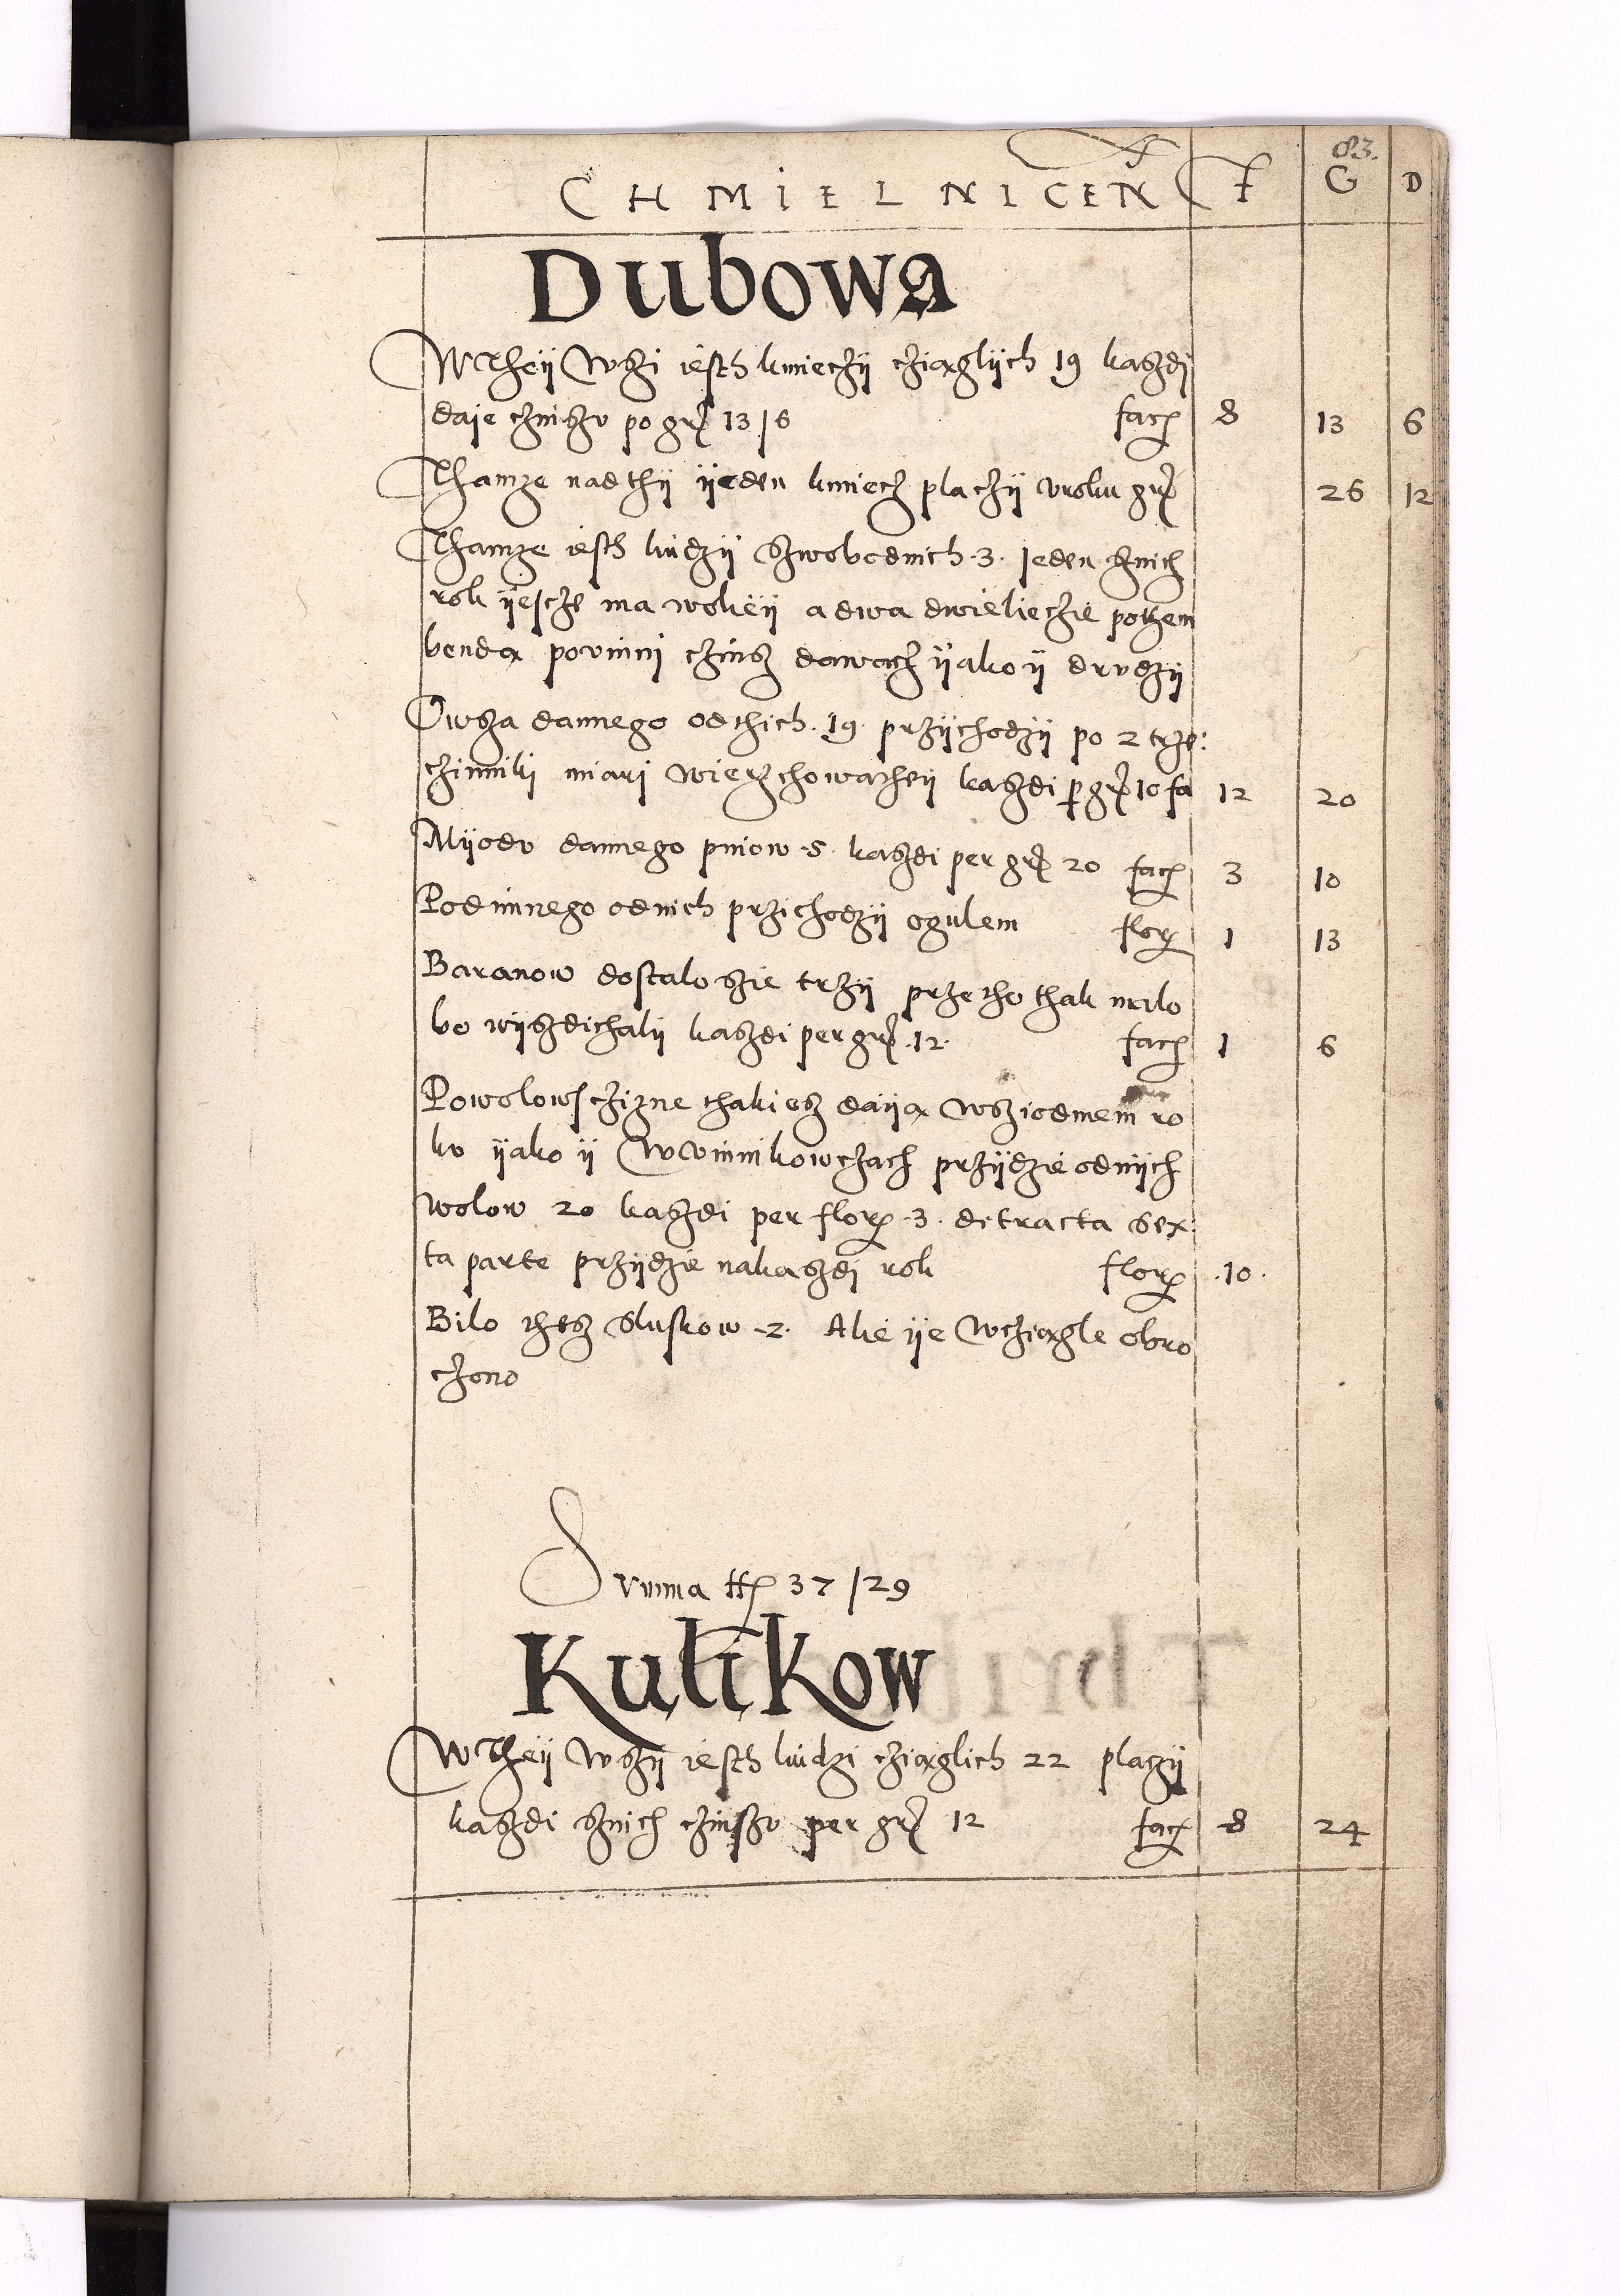 83.
CHMIELNICEN F G D
Dubowa
W Theÿ Wszi iesth kmieczÿ cziąglÿch 19 kaszdi
daje czinszv po grͦ 13/6 facͭ 8 13 6
Thamze nad thÿ ÿeden kmiecz placzÿ vroku grͦ 26 12
Thamze iesth ludzÿ Szwobodnich .3. jeden sznich
rok ÿescze ma wolieÿ a dwa dwielieczie potzem
bendą povinni czinsz dawacz ÿako ÿ drvdzÿ
Owsza dannego od thich .19. przÿchodzÿ po 2 trze:
czinniki miari wierzchowatheÿ kaszdi per grͦ 10 fa 12 20
Mÿodv dannego pniow .5. kaszdi per grͦ 20 facͭ 3 10
Podimnego odnich przichodzÿ ogulem flor 1 13
Baranow dostalo szie trzÿ przetho thak malo
bo wÿszdichalÿ kaszdi per grͦ .12. facͭ 1 6
Powolowsczizne thakiesz daÿą wsziodmem ro
kv ÿako ÿ W Vinnikowczach przÿdzie odnÿch
wolow 20 kaszdi per flor .3. detracta sex
ta parte przÿdzie nakaszdi rok flor .10.
Bilo thesz Sluskow .2. Alie ÿe Wcziągle obro
czono
Svmma ff 37/29
Kulikow
W Theÿ Wszÿ iesth ludzi cziąglich 22 placzÿ
kaszdi sznich czinszv per grͦ 12 facͭ 8 24